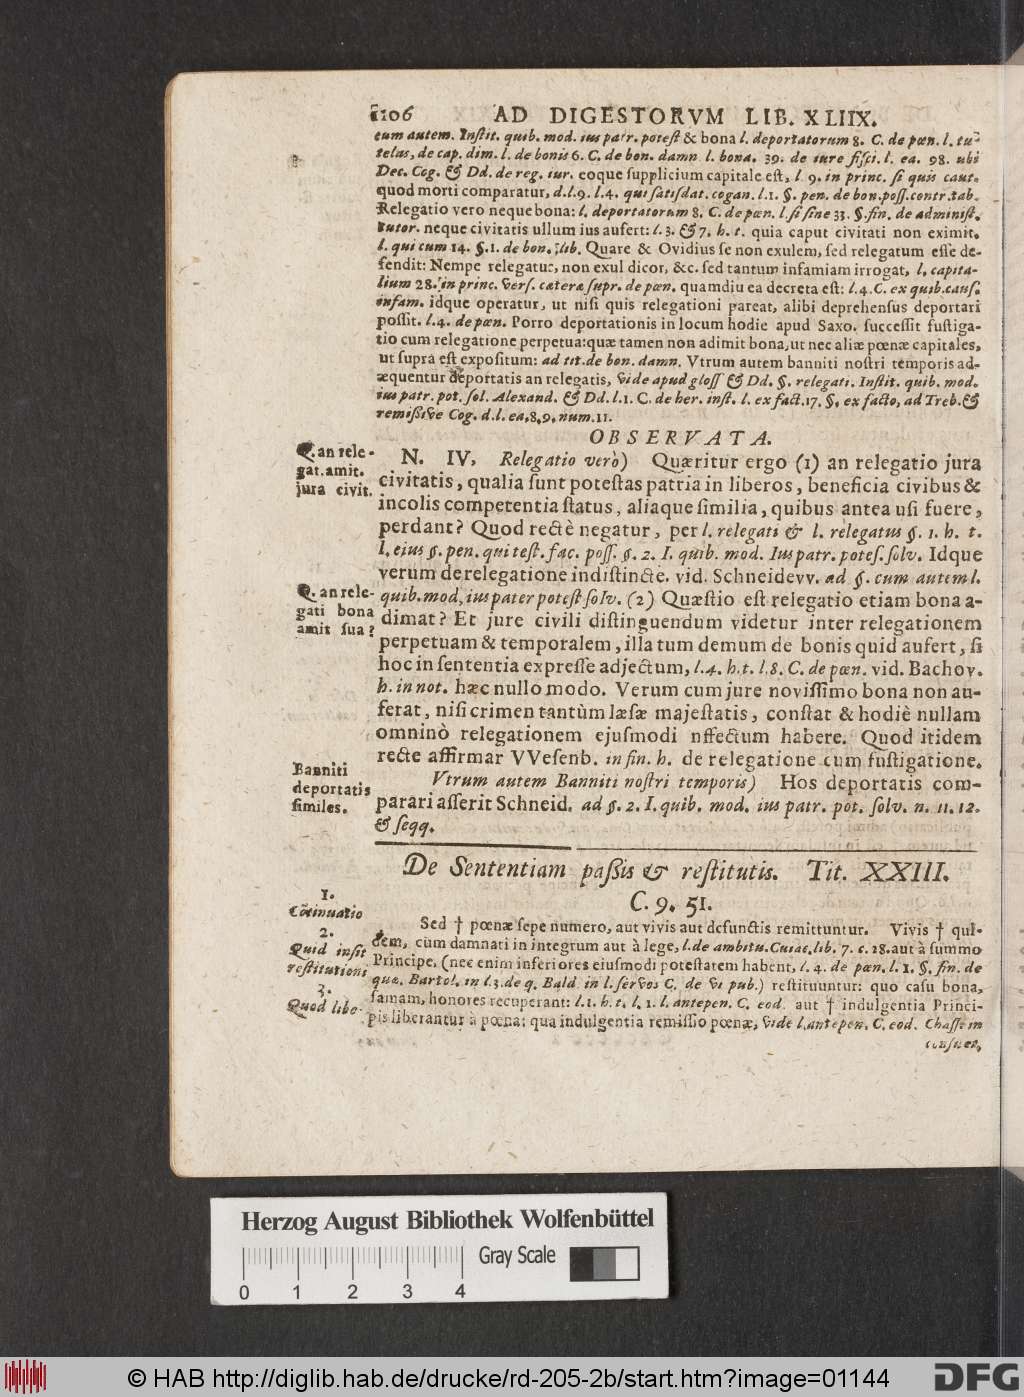 1106 AD DIGESTORVM LIB. XLIIX.
eum autem. Instit. quib. mod. ius patr. potest & bona l. deportatorum 8. C. de pœn. l. tu-
telas, de cap. dim. l. de bonis 6. C. de bon. damn l. bona. 39. de iure fisci. l. ea. 98. ubi
Dec. Cog. & Dd. de reg. iur. eoque supplicium capitale est, l. 9. in princ. si quis caut.
quod morti comparatur, d.l.9. l.4. qui satisdat. cogan. l.1. §. pen. de bon.poss.contr.tab.
Relegatio vero neque bona: l. deportatorum 8. C. de pœn. l. si fine 33. §. fin. de administ.
tutor. neque civitatis ullum ius aufert: l.3. & 7. h. t. quia caput civitati non eximit.
l. qui cum 14. §.1. de bon. lib. Quare & Ovidius se non exulem, sed relegatum esse de-
fendit: Nempe relegatus, non exul dicor, &c. sed tantum infamiam irrogat, l. capita-
lium 28. in princ. vers. cætera supr. de pœn. quamdiu ea decreta est: l.4. C. ex quib. caus.
infam. idque operatur, ut nisi quis relegationi pareat, alibi deprehensus deportari
possit. l.4. de pœn. Porro deportationis in locum hodie apud Saxo. successit fustiga-
tio cum relegatione perpetua: quæ tamen non adimit bona, ut nec aliæ pœnæ capitales,
ut supra est expositum: ad tit. de bon. damn. Vtrum autem banniti nostri temporis ad-
æquentur deportatis an relegatis, vide apud gloss & Dd. §. relegati. Instit. quib. mod.
ius patr. pot. sol. Alexand. & Dd. l.1. C. de her. inst. l. ex fact. 17. §. ex facto, ad Treb. &
remissive Cog. d.l. ea. 8.9. num. 11.
OBSERVATA.
Q. an rele-
gat. amit.
jura civit.
N. IV. Relegatio verò) Quæritur ergo (1) an relegatio jura
civitatis, qualia sunt potestas patria in liberos, beneficia civibus &
incolis competentia status, aliaque similia, quibus antea usi fuere,
perdant? Quod rectè negatur, per l. relegati & l. relegatus §. 1. h. t.
l. ejus §. pen. qui test. fac. poss. §. 2. I. quib. mod. Ius patr. potes. solv. Idque
verum de relegatione indistincte. vid. Schneidevv. ad §. cum autem l.
Q. an rele-
gati bona
amit sua?
quib. mod. ius pater potest solv. (2) Quæstio est relegatio etiam bona a-
dimat? Et jure civili distinguendum videtur inter relegationem
perpetuam & temporalem, illa tum demum de bonis quid aufert, si
hoc in sententia expresse adjectum, l.4. h.t. l.8. C. de pœn. vid. Bachov.
h. in not. hæc nullo modo. Verum cum jure novissimo bona non au-
ferat, nisi crimen tantùm læsæ majestatis, constat & hodiè nullam
omninò relegationem ejusmodi nffectum habere. Quod itidem
recte affirmar VVesenb. in fin. h. de relegatione cum fustigatione.
Banniti
deportatis
similes.
Vtrum autem Banniti nostri temporis) Hos deportatis com-
parari asserit Schneid. ad §. 2. I. quib. mod. ius patr. pot. solv. n. 11. 12.
& seqq.
De Sententiam passis & restitutis. Tit. XXIII.
C. 9. 51.
1.
Cõtinuatio
2.
Quid insit
restitutioni
3.
Quod libe-
Sed † pœnæ sepe numero, aut vivis aut defunctis remittuntur. Vivis † qui-
dem, cùm damnati in integrum aut à lege, l. de ambitu. Cuiac. lib. 7. c. 28. aut à summo
Principe. (nec enim inferiores eiusmodi potestatem habent, l. 4. de pœn. l. 1. §. fin. de
quæ. Bartol. in l.3. de q. Bald. in l. servos C. de vi pub.) restituuntur: quo casu bona,
famam, honores recuperant: l.1. h. t. l. 1. l. antepen. C. eod. aut † indulgentia Princi-
pis liberantur à pœna: qua indulgentia remissio pœnæ, vide l. antepen. C. eod. Chass. in
consuet.
Herzog August Bibliothek Wolfenbüttel
Gray Scale
0 1 2 3 4
© HAB http://diglib.hab.de/drucke/rd-205-2b/start.htm?image=01144
DFG